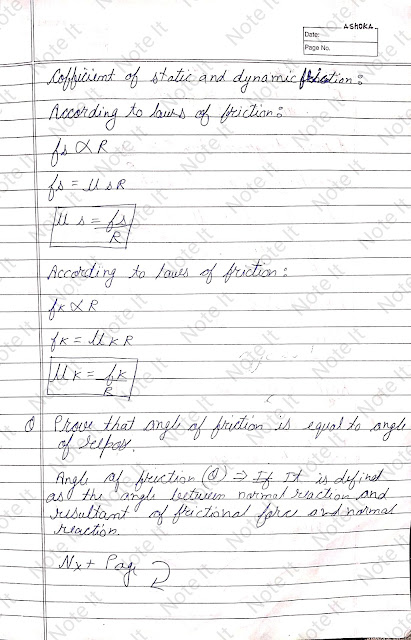 ASHOKA
Date:
Page No.
Cofficient of static and dynamic friction:
According to laws of friction:
fs ∝ R
fs = μ s R
μ s = fs/R
According to laws of friction:
fK ∝ R
fK = μ K R
μ K = fK/R
Q Prove that angle of friction is equal to angle
of relpos.
Angle of friction (θ) ⇒ If It is defined
as the angle between normal reaction and
resultant of frictional force and normal
reaction.
Nx+ Page
Note It